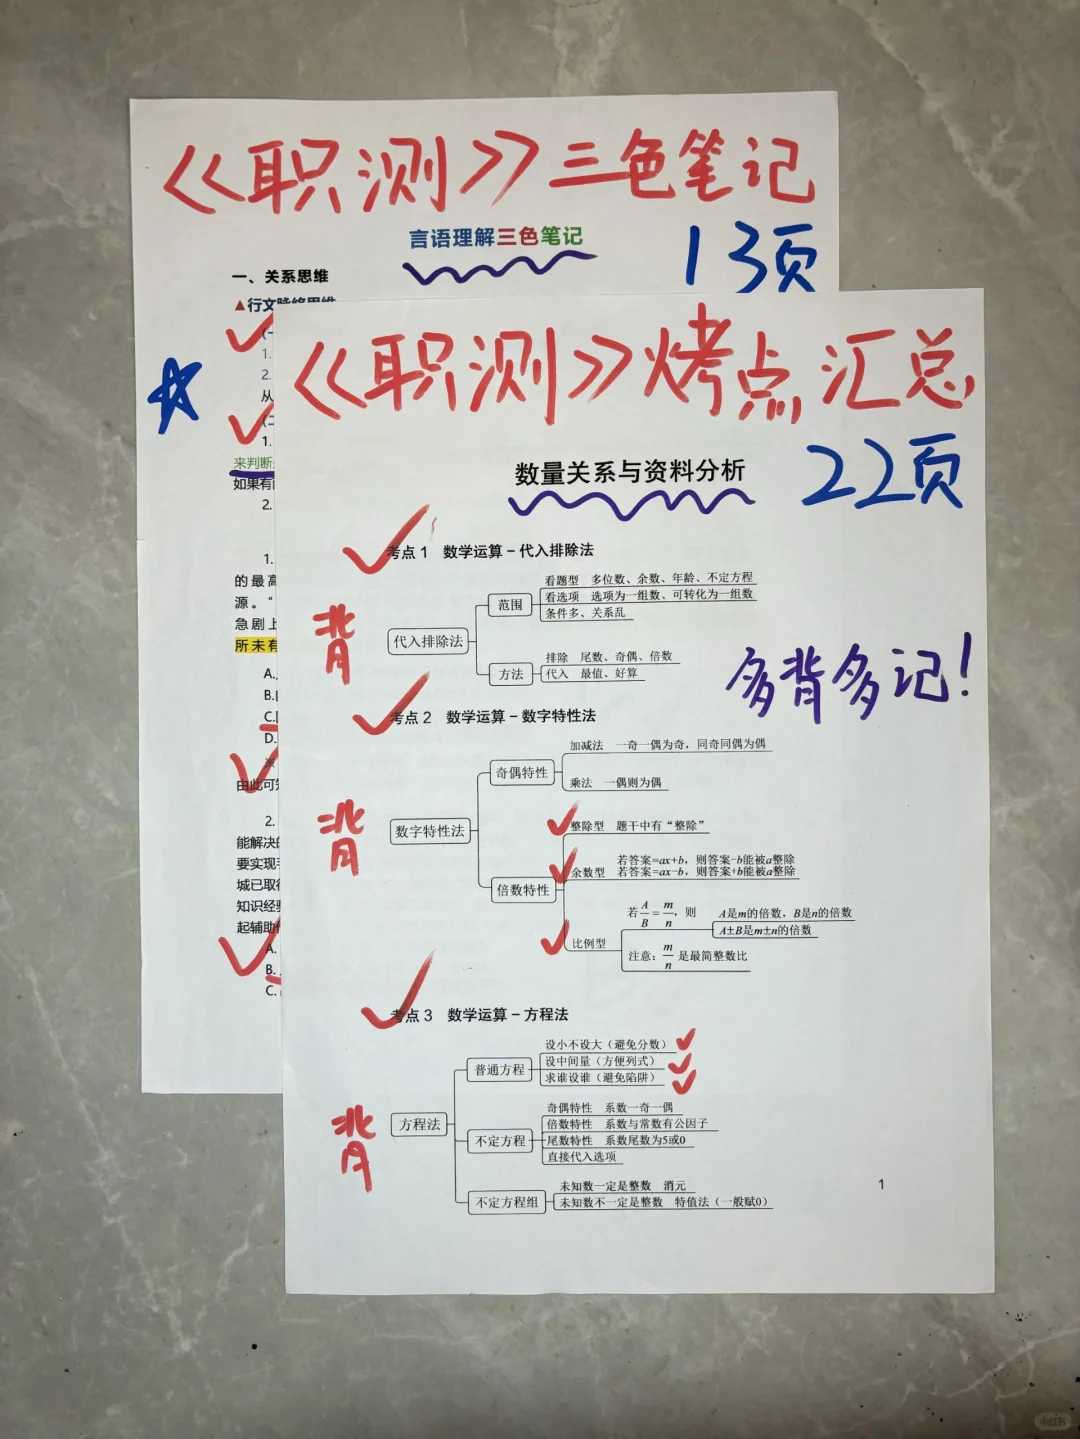 《职测》三色笔记
言语理解三色笔记
13页
一、关系思维
▲行文脉络思维
(一
1.
2.
从
(二
1.
来判断
如果有
2.
1.
的最高
源。"
急剧上
所未有
A.
B.
C.
D.
※
由此可知
2.
能解决的
要实现
城已取得
知识经验
起辅助
A.
B.
C.
《职测》烤点汇总
22页
数量关系与资料分析
考点1 数学运算-代入排除法
背
代入排除法
范围
看题型 多位数、余数、年龄、不定方程
看选项 选项为一组数、可转化为一组数
条件多、关系乱
方法
排除 尾数、奇偶、倍数
代入 最值、好算
多背多记!
考点2 数学运算-数字特性法
背
数字特性法
奇偶特性
加减法 一奇一偶为奇，同奇同偶为偶
乘法 一偶则为偶
倍数特性
整除型 题干中有“整除”
余数型
若答案=ax+b，则答案-b能被a整除
若答案=ax-b，则答案+b能被a整除
比例型
若A/B=m/n，则
A是m的倍数，B是n的倍数
A±B是m±n的倍数
注意：m/n是最简整数比
考点3 数学运算-方程法
背
方程法
普通方程
设小不设大（避免分数）
设中间量（方便列式）
求谁设谁（避免陷阱）
不定方程
奇偶特性 系数一奇一偶
倍数特性 系数与常数有公因子
尾数特性 系数尾数为5或0
直接代入选项
不定方程组
未知数一定是整数 消元
未知数不一定是整数 特值法（一般赋0）
1
小红书